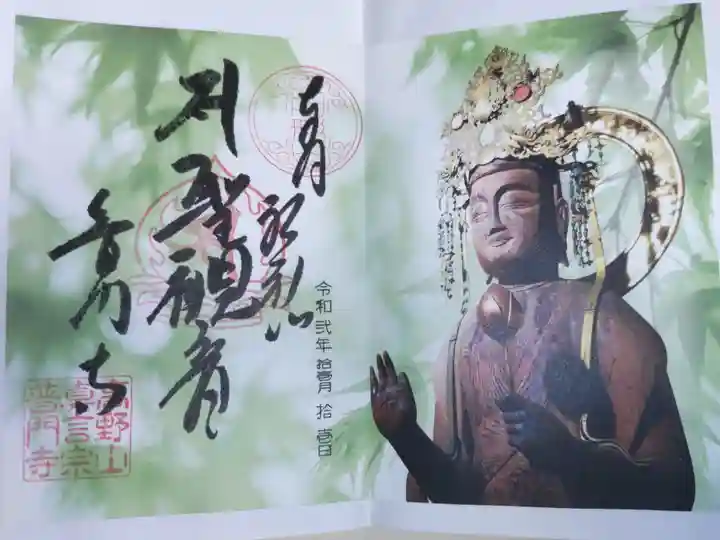 聖観音
令和弐年 拾壱月 拾壱日
普門寺
高野山
真言宗
普門寺